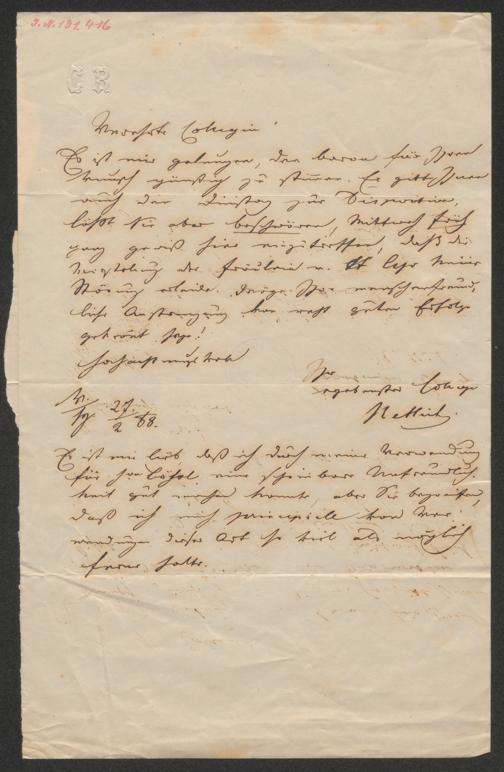 J.N. 191.416
C R
Verehrte Collegin!
Es ist mir gelungen, den Baron für Ihren
Wunsch günstig zu stimmen. Er gibt Ihnen
auch den Dienstag zur Disposition,
läßt Sie aber beschwören, Mittwoch früh
ganz gewiß hier einzutreffen, daß die
Vorstellung des Fräulein v. keine
Störung erleide. Möge Ihre menschenfreund-
liche Anstrengung von recht gutem Erfolge
gekrönt sein!
Hochachtungsvoll
Ihr
ergebenster College
Rettich.
W.
27/2 68.
Es ist mir lieb daß ich durch meine Verwendung
für eine scheinbare Unfreundlich-
keit gut machen konnte, aber Sie begreifen,
daß ich mich principiell von Ver-
wendungen dieser Art so viel als möglich
ferne halte.